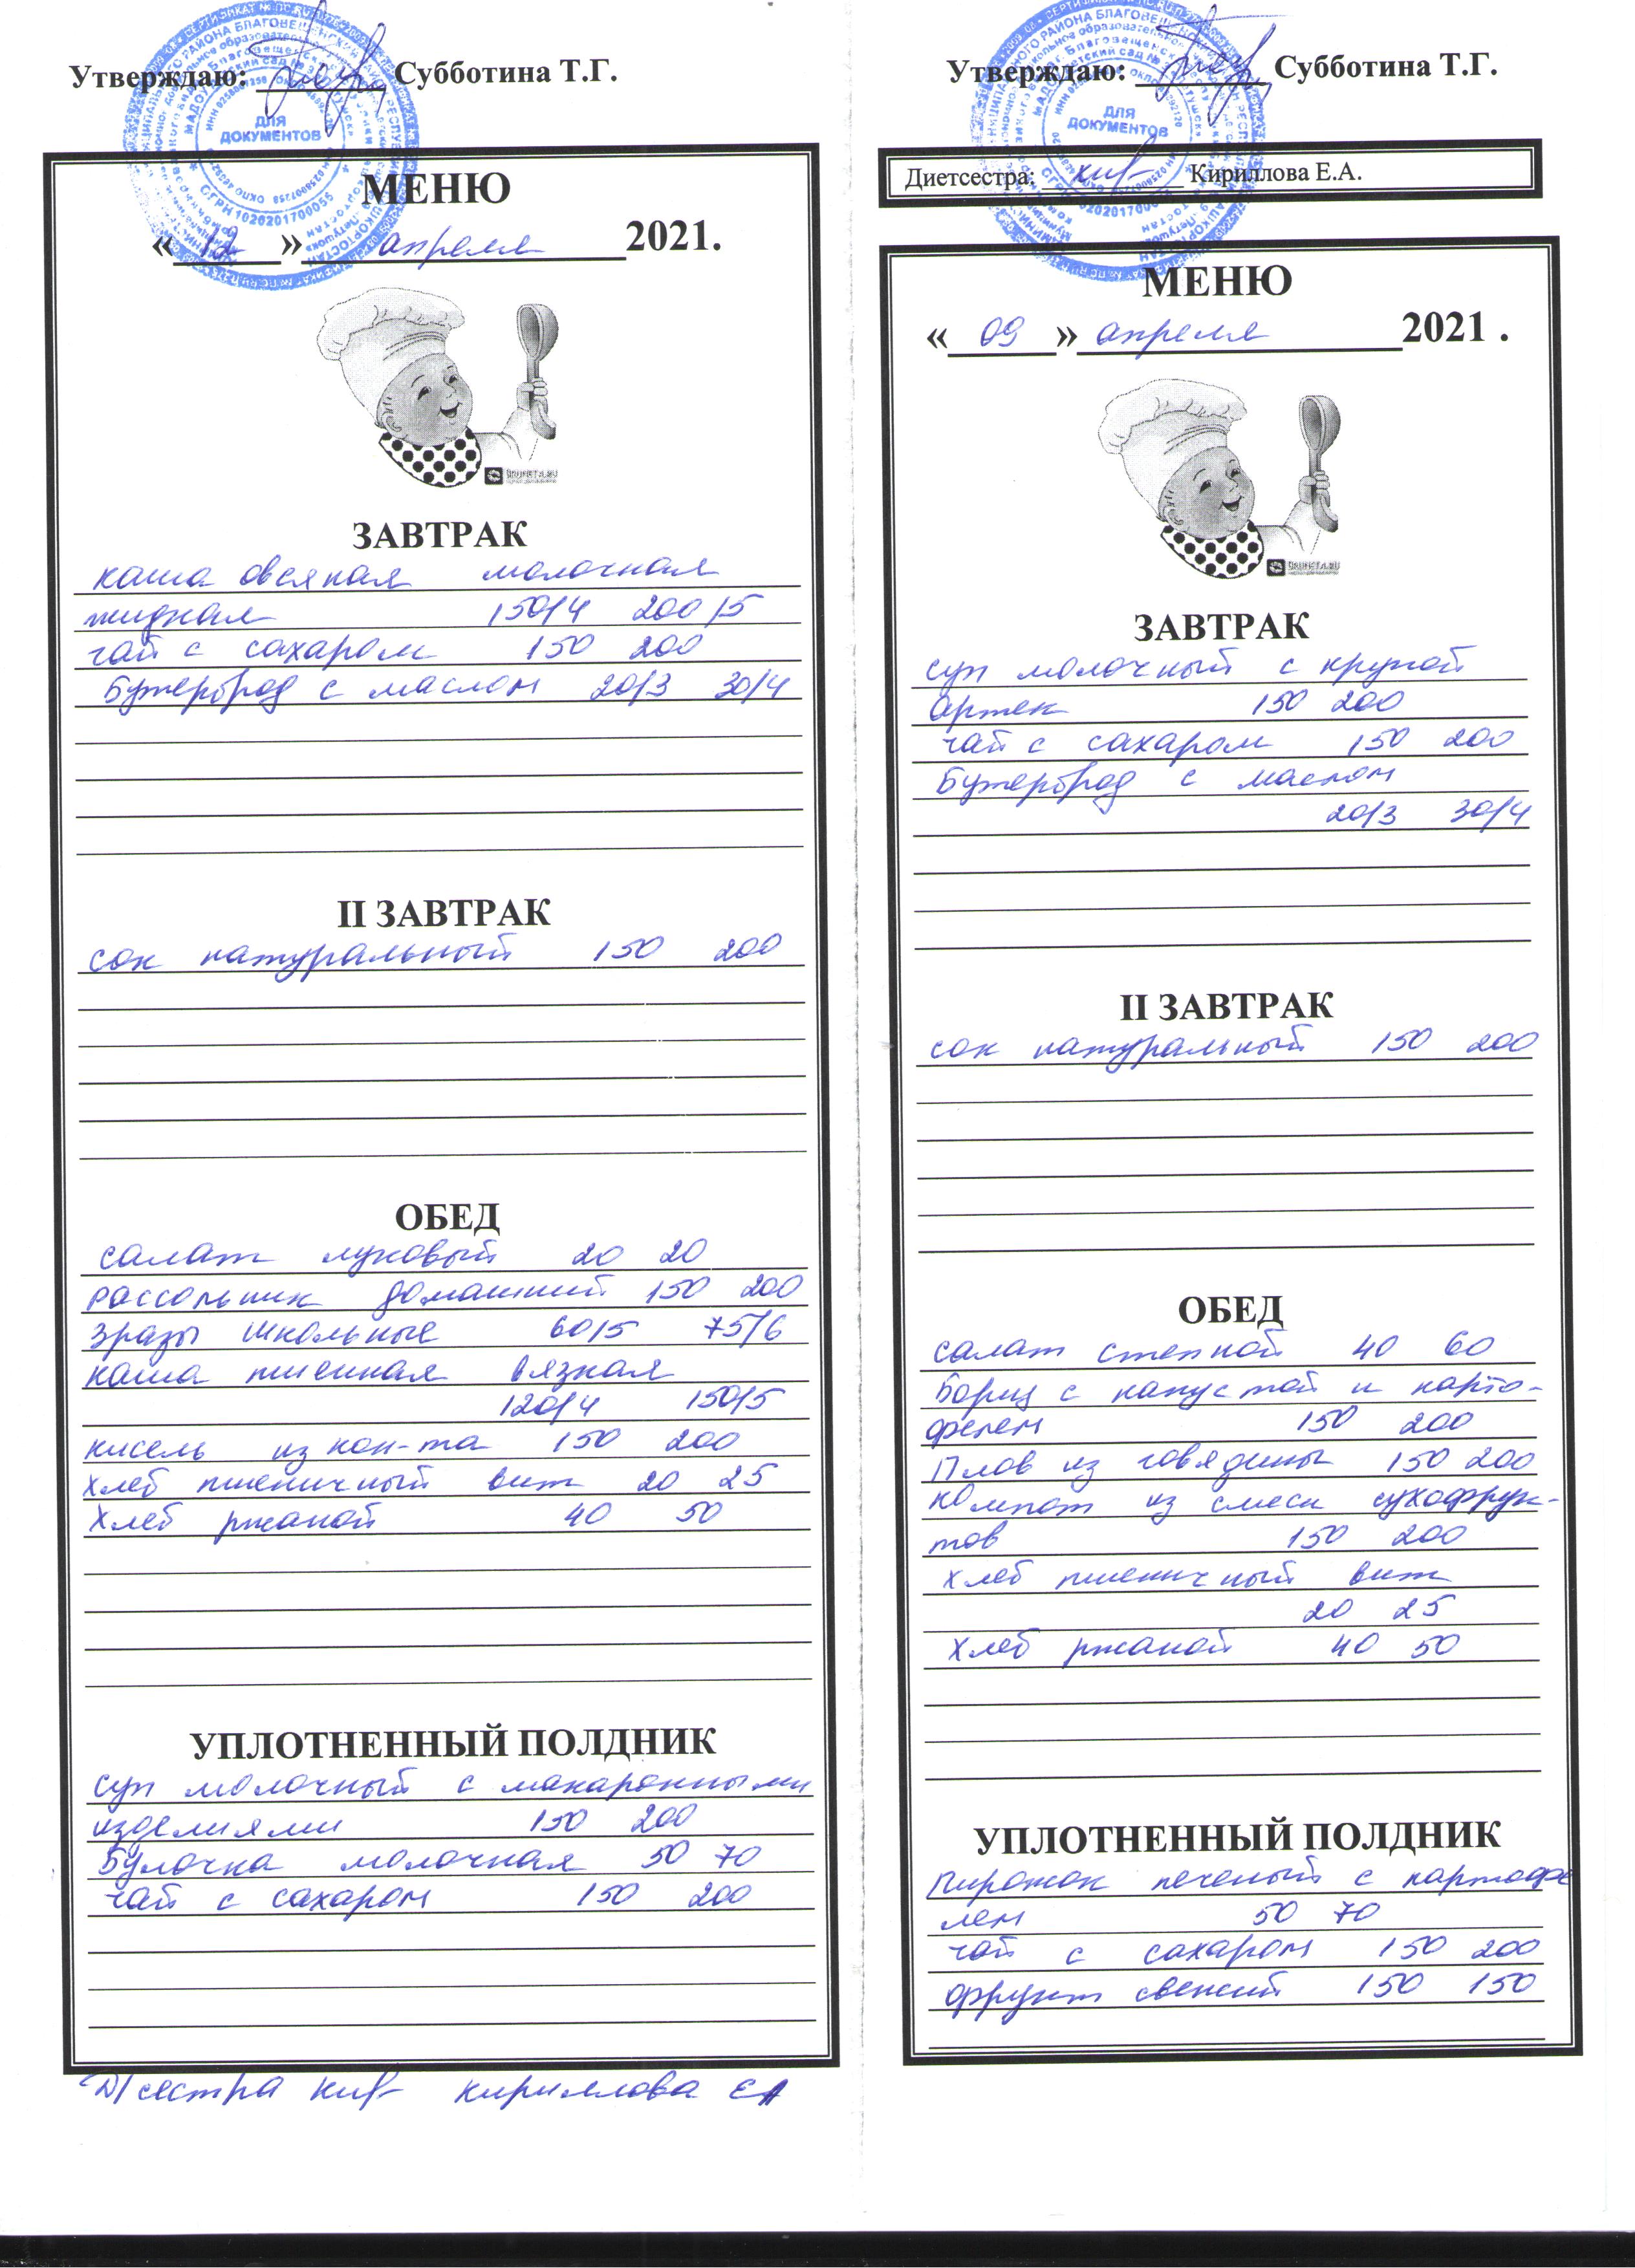 Утверждаю: Субботина Т.Г.
ДЛЯ
ДОКУМЕНТОВ
МЕНЮ
« 12 » апреля 2021.
ЗАВТРАК
каша овсяная молочная
жидкая 150/4 200/5
чай с сахаром 150 200
Бутерброд с маслом 20/3 30/4
II ЗАВТРАК
сок натуральный 150 200
ОБЕД
салат луковый 20 20
рассольник домашний 150 200
зразы школьные 60/5 75/6
каша пшенная вязкая
120/4 150/5
кисель из кон-та 150 200
хлеб пшеничный вит 20 25
хлеб ржаной 40 50
УПЛОТНЕННЫЙ ПОЛДНИК
суп молочный с макаронными
изделиями 150 200
Булочка молочная 50 70
чай с сахаром 150 200
Д/сестра Кириллова ЕА
Утверждаю: Субботина Т.Г.
ДЛЯ
ДОКУМЕНТОВ
Диетсестра: Кириллова Е.А.
МЕНЮ
« 09 » апреля 2021 .
ЗАВТРАК
суп молочный с крупой
Артек 150 200
чай с сахаром 150 200
Бутерброд с маслом
20/3 30/4
II ЗАВТРАК
сок натуральный 150 200
ОБЕД
салат степной 40 60
Борщ с капустой и карто-
фелем 150 200
Плов из говядины 150 200
компот из смеси сухофрук-
тов 150 200
хлеб пшеничный вит
20 25
хлеб ржаной 40 50
УПЛОТНЕННЫЙ ПОЛДНИК
Пирожок печеный с картофе
лем 50 70
чай с сахаром 150 200
фрукт свежий 150 150